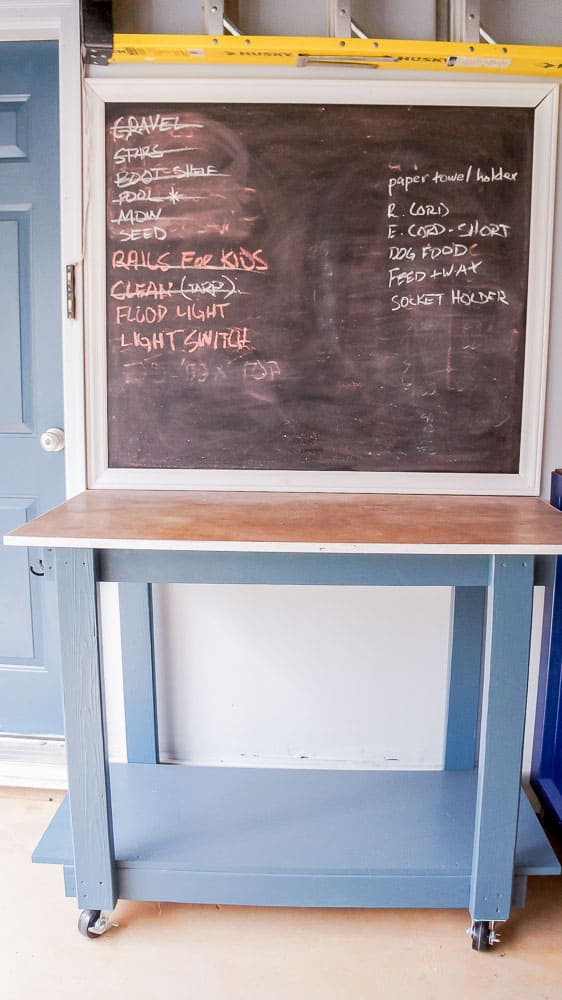 HUSKY
HUSKY
GRAVEL
STARS
BOOT SHELF
POOL *
MOW
SEED
RAILS FOR KIDS
CLEAN (TARP)
FLOOD LIGHT
LIGHT SWITCH
paper towel holder
R. CORD
E. CORD - SHORT
DOG FOOD
FEED + WAX
SOCKET HOLDER